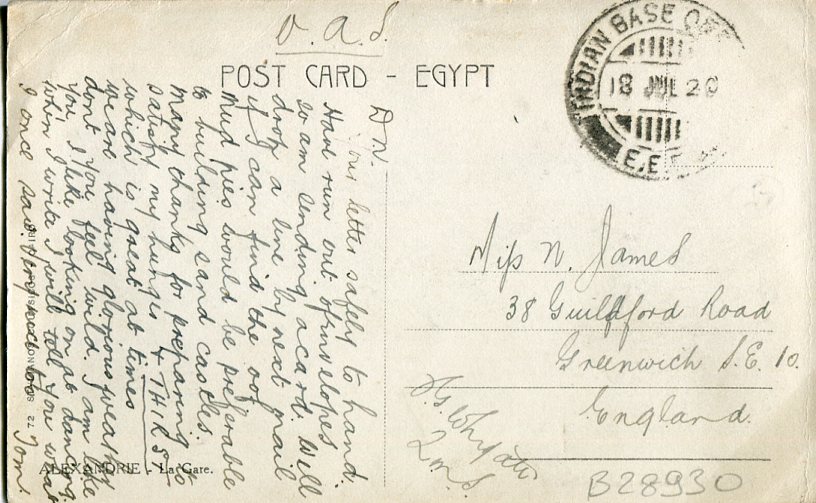 O.A.S.
POST CARD - EGYPT
INDIAN BASE
18 JUL 20
E.E.F
D N.
Your letter safely to hand.
Have run out of envelopes
so am sending a card. Will
drop a line by next mail
if I can find the oof.
Mud pies would be preferable
to building sand castles.
Many thanks for preparing to
satisfy my hunger & THIRST
which is great at times
we are having glorious weather
dont you feel wild. I am like
you I like looking on at dancing
when I write I will tell you what
I once said
Tom.
Miss N. James
38 Guildford Road
Greenwich S.E. 10.
England.
2nd
B28930
ALEXANDRIE - La Gare.
72